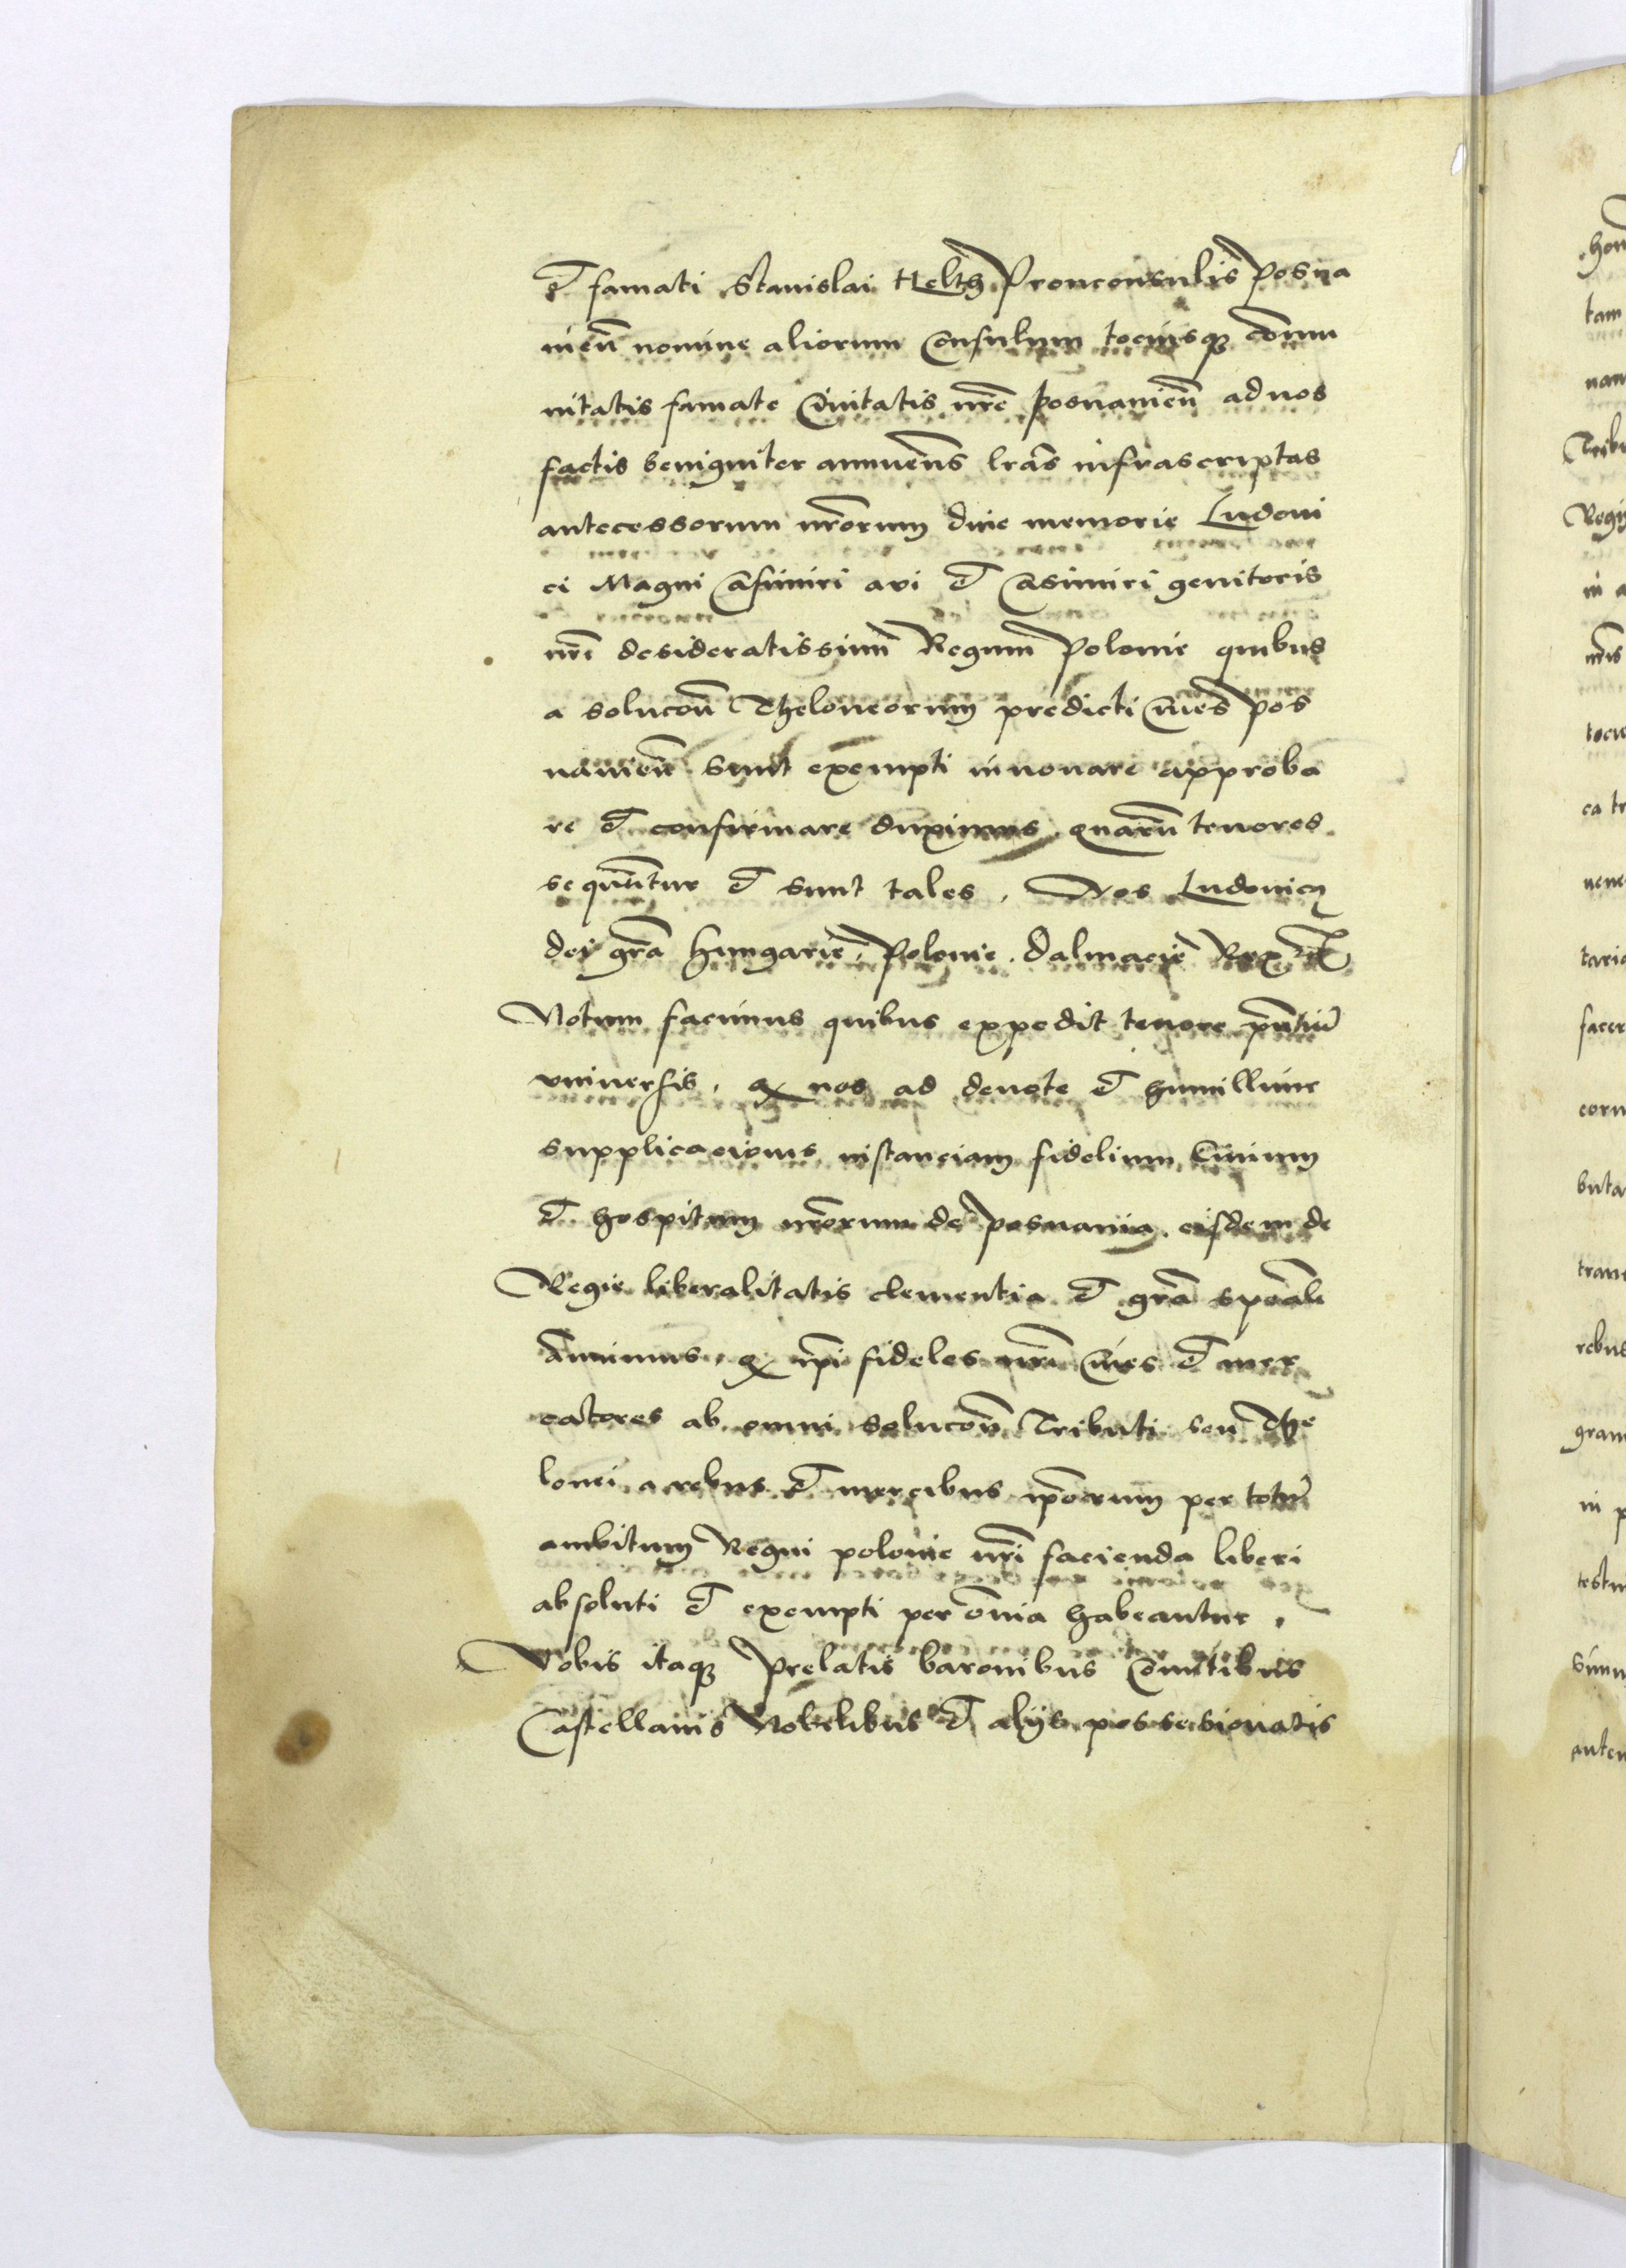 et famati Stanislai Helth Pronconsulis Posna
nieñ nomine aliorum Consulum tociusq₃ com̄u
nitatis famate Ciuitatis nr̄e posnanieñ ad nos
factis benigniter annuens̄ lr̄as infrascriptas
antecessorum nr̄orum diue memorie Ludoui
ci Magni Casimiri aui et Casimiri genitoris
nr̄i desideratissimi Regum Polonie quibus
a solucoñ Theloneorum predicti Ciues̄ Pos
nanieñ sunt exempti innouare approba
re et confirmare duximus. quarū tenores
sequūtur et sunt tales. Nos Ludouicꝰ
dei gr̄a Hungarie, Polonie. Dalmacie Rex etc̄
Notum facimus quibus expedit tenore pn̄tiū
vniuersis. qꝫ nos ad deuote et humillime
supplicacionis instanciam fidelium Ciuium
et hospitum nr̄orum de Posnania. eisdem de
Regie liberalitatis clementia et gr̄a speāli
Annuimus. qꝫ ip̄i fideles nr̄i Ciues et mer
catores ab omni solucoñ Tributi seu The
lonei a rebus et mercibus ip̄orum per totū
ambitum Regni polonie nr̄i facienda liberi
absoluti et exempti per om̄ia habeantur.
Vobis itaq₃ Prelatis baronibus Comitibus
Castellanis Nobilibus et alijs possesionatis